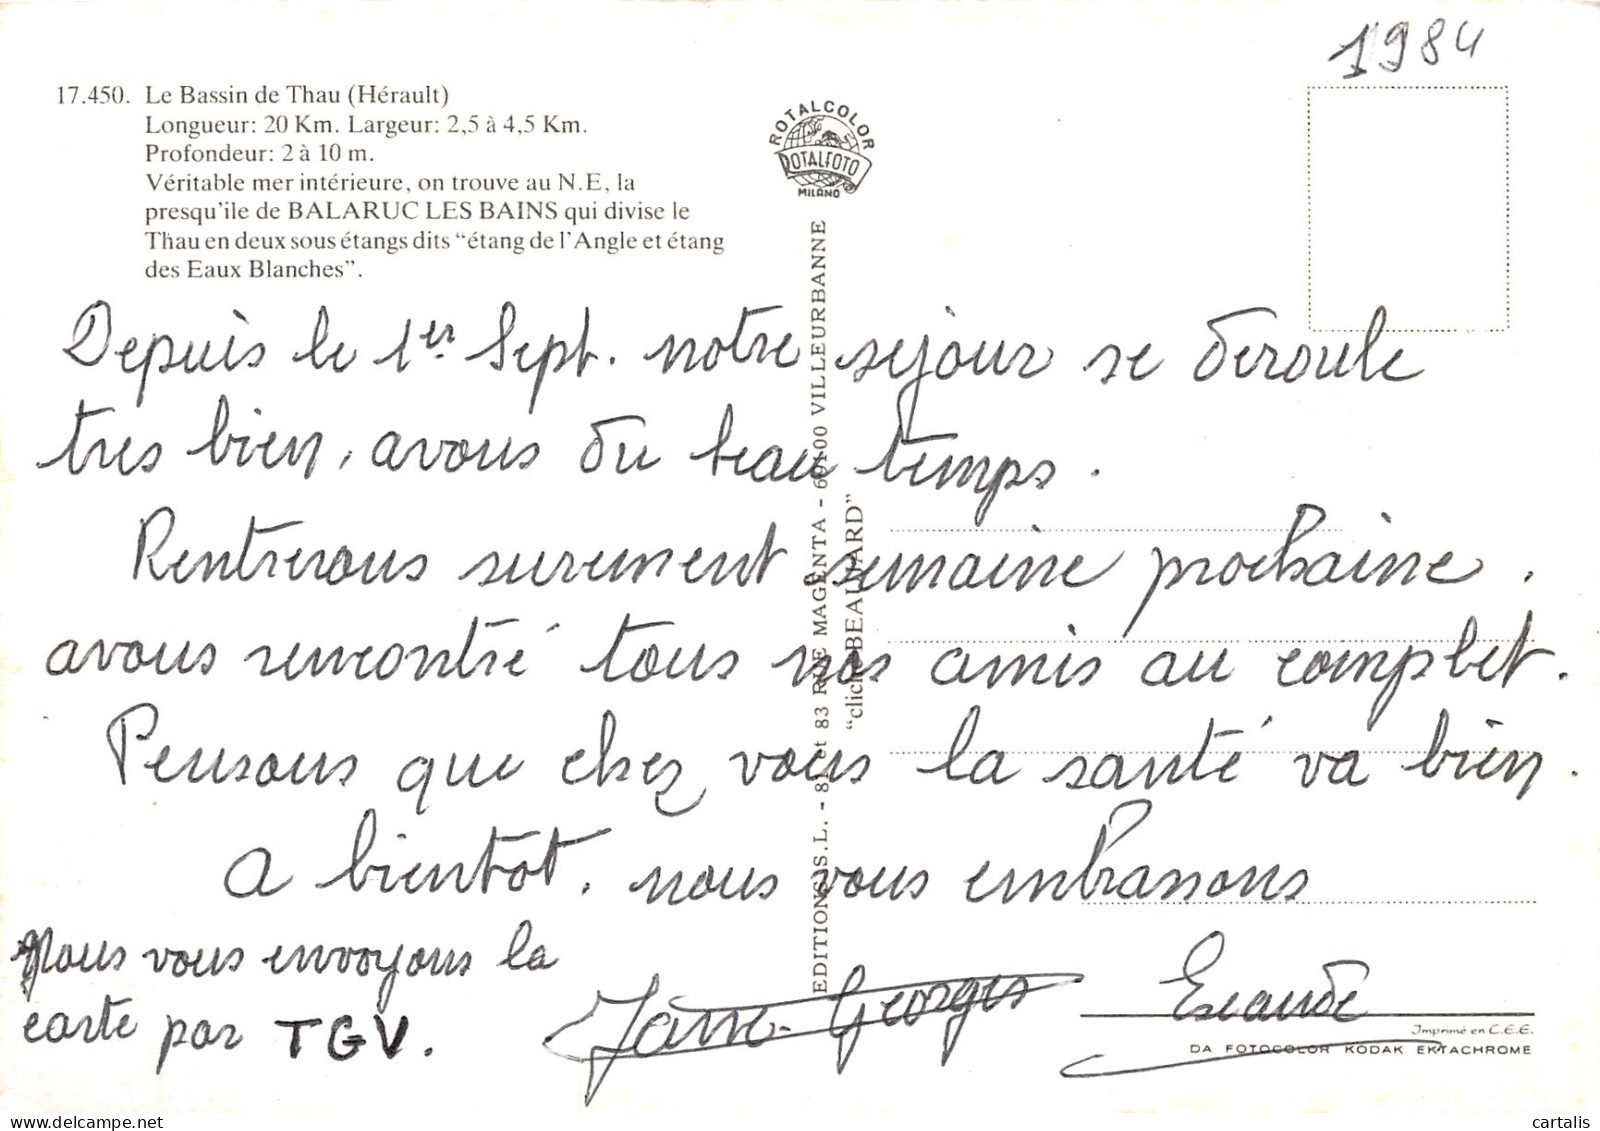 1984
17.450. Le Bassin de Thau (Hérault)
Longueur: 20 Km. Largeur: 2,5 à 4,5 Km.
Profondeur: 2 à 10 m.
Véritable mer intérieure, on trouve au N.E, la
presqu'ile de BALARUC LES BAINS qui divise le
Thau en deux sous étangs dits “étang de l'Angle et étang
des Eaux Blanches”.
ROTALCOLOR
ROTALFOTO
MILANO
EDITIONS S.L. - 81 et 83 RUE MAGENTA - 69100 VILLEURBANNE
“cliché BEAUVARD”
Depuis le 1er Sept. notre sejour se deroule
tres bien, avons du beau temps.
Rentrerons surement semaine prochaine.
avons rencontré tous nos amis au complet.
Pensons que chez vous la santé va bien.
a bientot. nous vous embrassons
Nous vous envoyons la
carte par TGV.
Georges
Escande
Imprimé en C.E.E.
DA FOTOCOLOR KODAK EKTACHROME
cartalis